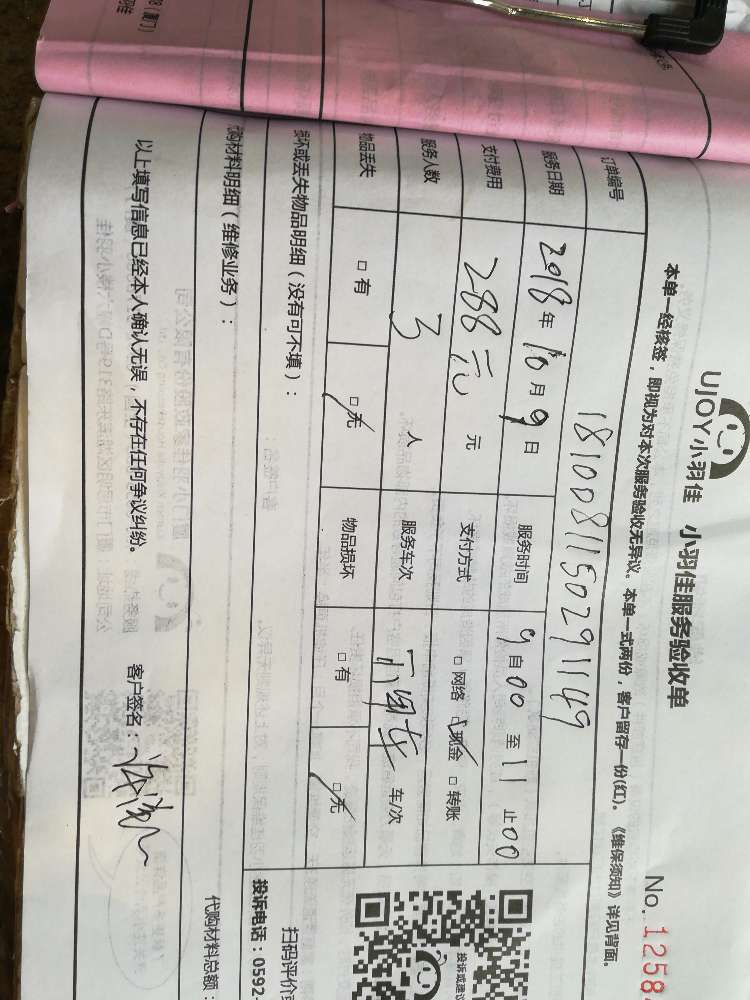 UJOY小羽佳 小羽佳服务验收单
No. 1258
本单一经核签，即视为对本次服务验收无异议。本单一式两份，客户留存一份(红)。《维保须知》详见背面。
订单编号 181008115029149
服务日期 2018年10月9日 服务时间 9自00至11止00
支付费用 288元 元 支付方式 □网络 ☑现金 □转账
服务人数 3 人 服务车次 车/次
物品丢失 □有 ☑无 物品损坏 □有 ☑无
损坏或丢失物品明细（没有可不填）：
扫码评价或
投诉电话：0592-
代购材料明细（维修业务）：
代购材料总额：
以上填写信息已经本人确认无误，不存在任何争议纠纷。 客户签名：